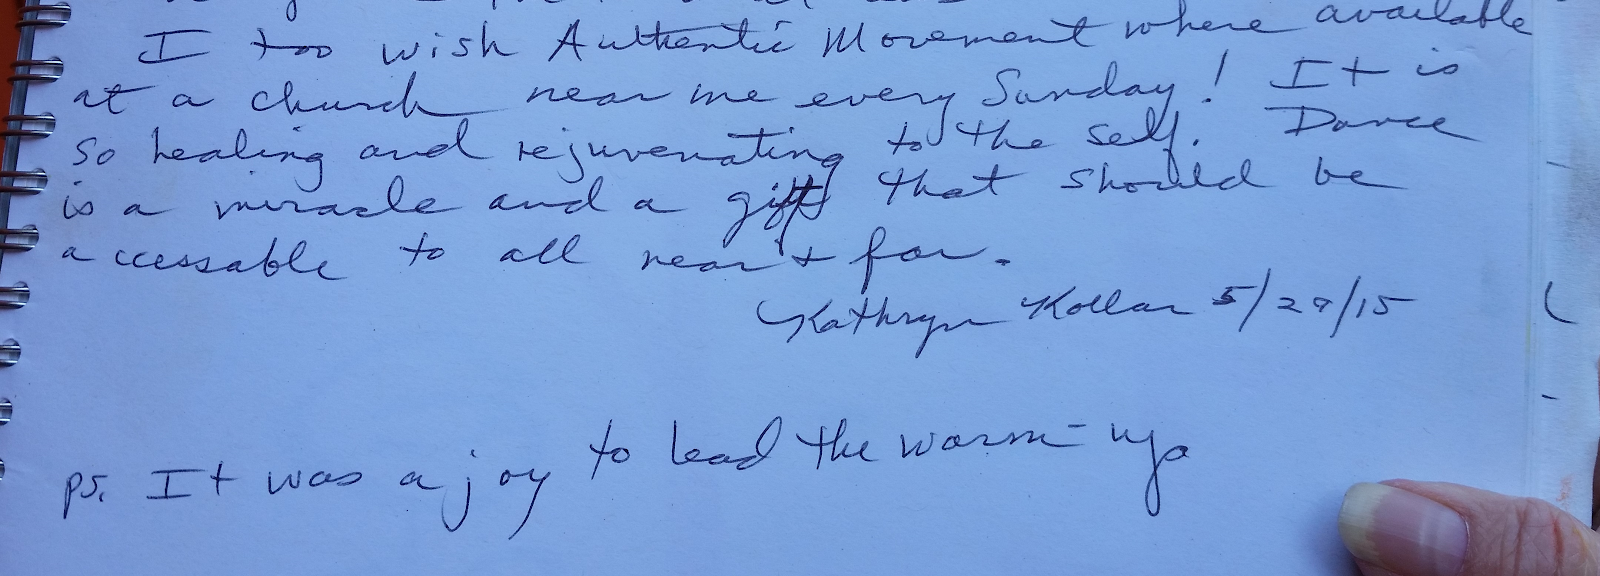 I too wish Authentic Movement where available
at a church near me every Sunday! It is
so healing and rejuvenating to the self. Dance
is a miracle and a gift that should be
accessable to all near + far.
Kathryn Kollar 5/29/15
ps. It was a joy to lead the warm-up